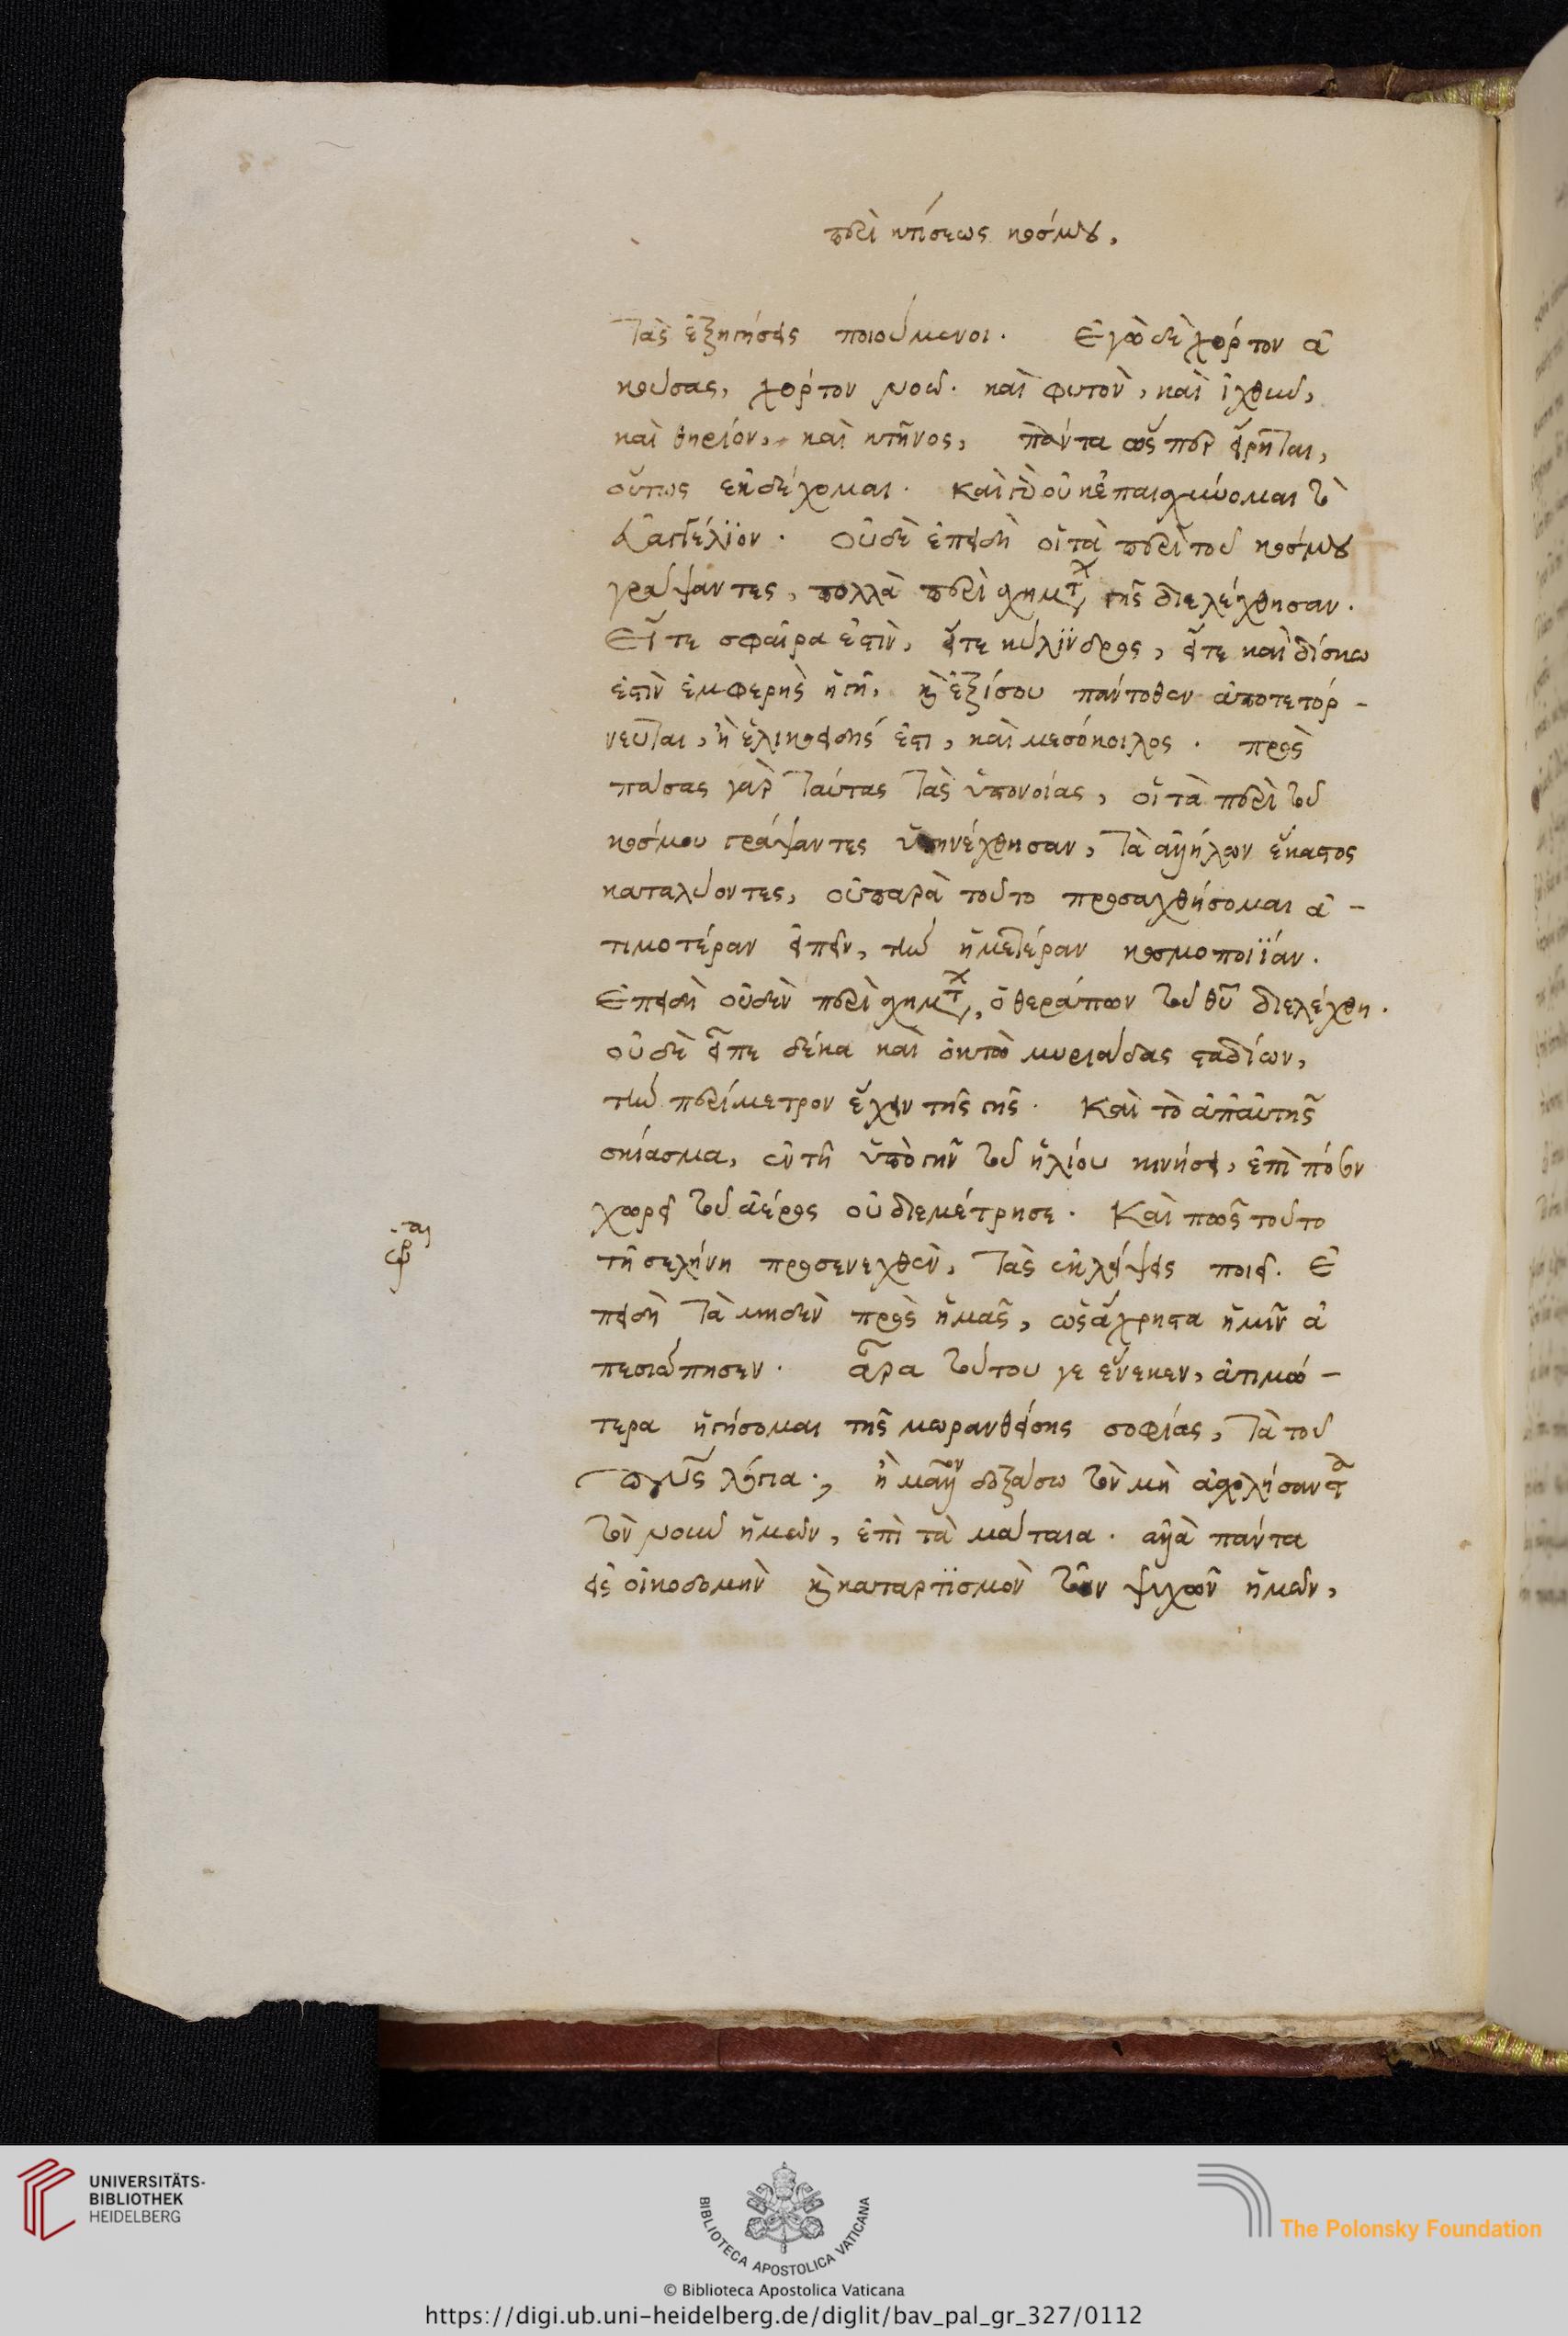 περὶ κτίσεως κόσμου,
τὰς ἐξηγήσεις ποιούμενοι. Ἐγὼ δὲ χόρτον ἀ
κούσας, χόρτον νοῶ. καὶ φυτὸν, καὶ ἰχθὺν,
καὶ θηρίον, καὶ κτῆνος, πάντα ὥς περ εἴρηται,
οὕτως ἐκδέχομαι. Καὶ γὰρ οὐκ ἐπαισχύνομαι τὸ
εὐαγγέλιον. οὐδὲ ἐπειδὴ οἱ τὰ περὶ τοῦ κόσμου
γράψαντες, πολλὰ περὶ σχημάτων γῆς διελέχθησαν.
Εἴτε σφαῖρα ἐστὶν, εἴτε κύλϊνδρος, εἴτε καὶ δίσκω
ἐστὶν ἐμφερὴς ἡ γῆ, καὶ ἐξίσου πάντοθεν ἀποτετόρ-
νευται, ἢ ἑλικοειδής ἐστι, καὶ μεσόκοιλος. πρὸς
πάσας γὰρ ταύτας τὰς ὑπονοίας, οἱ τὰ περὶ τοῦ
κόσμου γράψαντες ὑπηνέχθησαν, τὰ ἀλλήλων ἕκαστος
καταλύοντες, οὐ παρὰ τοῦτο προσαχθήσομαι ἀ-
τιμοτέραν εἰπεῖν, τὴν ἡμετέραν κοσμοποιΐαν.
Ἐπειδὴ οὐδὲν περὶ σχημάτων, ὁ θεράπων τοῦ θυ διελέχθη.
οὐδὲ εἶπε δέκα καὶ ὀκτὼ μυριάδας σταδίων,
τὴν περίμετρον ἔχειν τῆς γῆς. Καὶ τὸ ἀπ' αὐτῆς
σκίασμα, ἐν τῇ ὑπὸ γῆν τοῦ ἡλίου κινήσει, ἐπὶ πόσον
χωρεῖ τοῦ ἀέρος οὐ διεμέτρησε. Καὶ πῶς τοῦτο
τῇ σελήνη προσενεχθὲν, τὰς ἐκλείψεις ποιεῖ. Ἐ
πειδὴ τὰ μηδὲν πρὸς ἡμᾶς, ὡς ἄχρηστα ἡμῖν ἀ
πεσιώπησεν. ἆρα τούτου γε ἕνεκεν, ἀτιμώ-
τερα ἡγήσομαι τῆς μωρανθείσης σοφίας, τὰ τοῦ
πνς λόγια., ἢ μᾶλλον δοξάσω τὸν μὴ ἀσχολήσαντα
τὸν νοῦν ἡμῶν, ἐπὶ τὰ μάταια. ἀλλὰ πάντα
εἰς οἰκοδομὴν καὶ καταρτϊσμὸν τῶν ψυχῶν ἡμῶν,
UNIVERSITÄTS-
BIBLIOTHEK
HEIDELBERG
BIBLIOTECA APOSTOLICA VATICANA
© Biblioteca Apostolica Vaticana
The Polonsky Foundation
https://digi.ub.uni-heidelberg.de/diglit/bav_pal_gr_327/0112